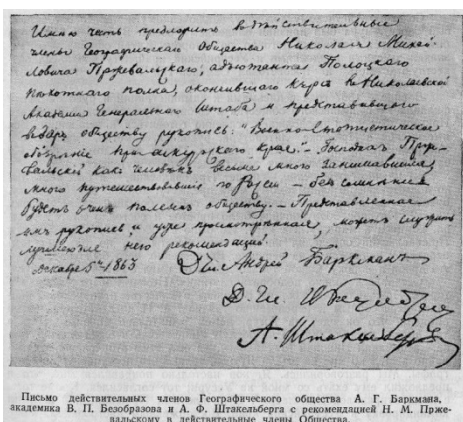 Имею честь предложить въ действительные
члены Географическаго Общества Николая Михай-
ловича Пржевальскаго, адъютанта Полоцкаго
пехотнаго полка, окончившаго курсъ въ Николаевской
Академiи Генеральнаго Штаба и представившаго
въ даръ обществу рукопись: "Военно-Статистическое
обозрѣнiе Приамурскаго края". – Господинъ Прже-
вальскiй какъ человѣкъ весьма много занимавшiйся,
много путешествовавшiй по Руси – безъ сомнѣнiя
будетъ очень полезенъ обществу. – Представленная
имъ рукопись и уже просмотрѣнная, можетъ служить
него рекомендацiей.
Декабря 5го 1863
Д. Чл. Андрей Баркманъ
Д. Чл.
А. Штакельбергъ
Письмо действительных членов Географического общества А. Г. Баркмана,
академика В. П. Безобразова и А. Ф. Штакельберга с рекомендацией Н. М. Прже-
вальскому в действительные члены Общества.